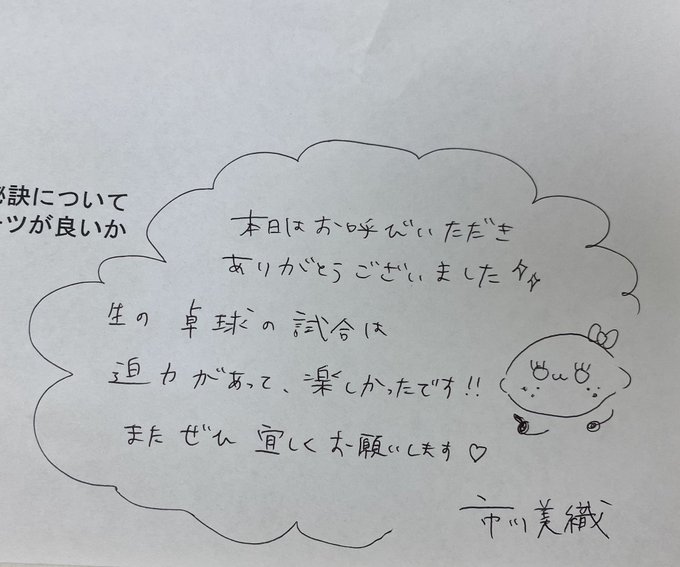 秘訣について
ーツが良いか
本日はお呼びいただき
ありがとうございました
生の 卓球の 試合は
迫力があって、楽しかったです!!
またぜひ 宜しくお願いします♡
市川美織